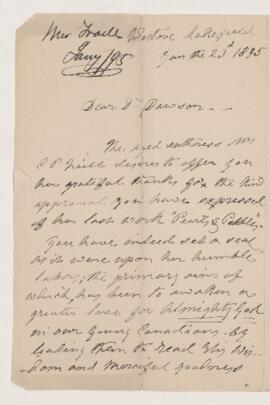 Mrs Traill Westove Lakefield
Jany /95 Jan the 23d 1895
Dear Dr Dawson —
The aged authoress Mrs
C P Traill desires to offer you
her grateful thanks for the kind
approval you have expressed
of her last work Pearls & Pebbles,
You have indeed set a seal
as it were upon her humble
labor, the primary aim of
which has been to awaken a
greater love for Almighty God
in our young Canadians by
leading them to read His Wis-
dom and merciful goodness